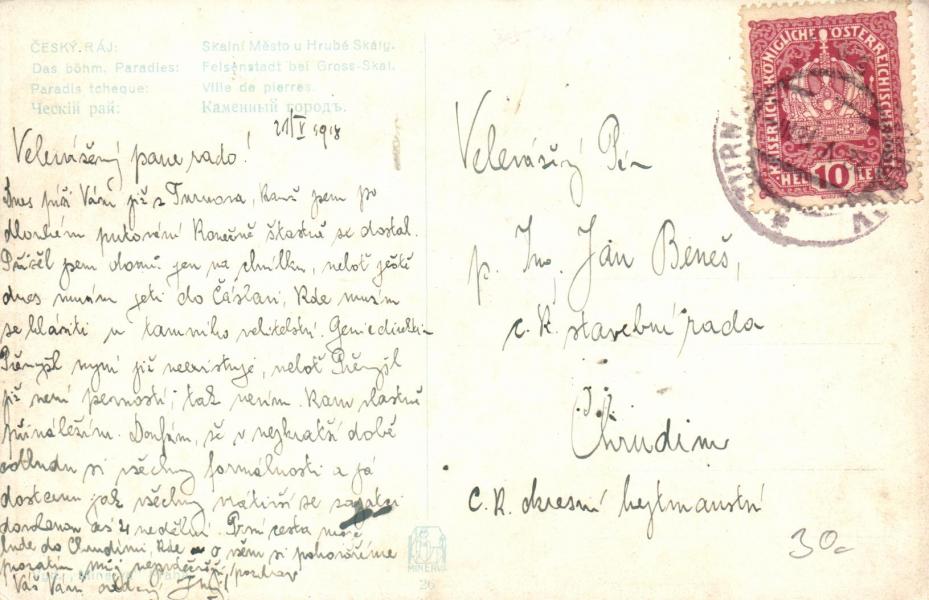 ČESKÝ RÁJ: Skalní Město u Hrubé Skály.
Das böhm. Paradies: Felsenstadt bei Gross-Skal.
Paradis tcheque: Ville de pierres.
Ческій рай: Каменный городъ.
21/V 1918
Velevážený pane rado!
Dnes píši Vám již z Turnova, kamž jsem po
dlouhém putování konečně šťastně se dostal.
Přijel jsem domů jen na chvilku, neboť ještě
dnes musím jeti do Čáslavi, kde musím
se hlásiti u tamního velitelství. Geniedirektion
Přemyšl nyní již neexistuje, neboť Přemyšl
již není pevností; tak nevím kam vlastně
přináležím. Doufám, že v nejkratší době
odbudu si všechny formálnosti a já
dostanu jak všechny
dovolenou as 4 nedělní. První cesta
bude do Chrudimi, kde o něm si pohovoříme
prozatím můj pozdrav
Váš Vám oddaný
Velevážený Pán
p. Ing. Ján Beneš,
c. k. stavební rada
Chrudim
c. k. okresní hejtmanství
30.-
KAISERLICHE KÖNIGLICHE ÖSTERREICHISCHE POST
10
HELLER
TURN
MINERVA
26